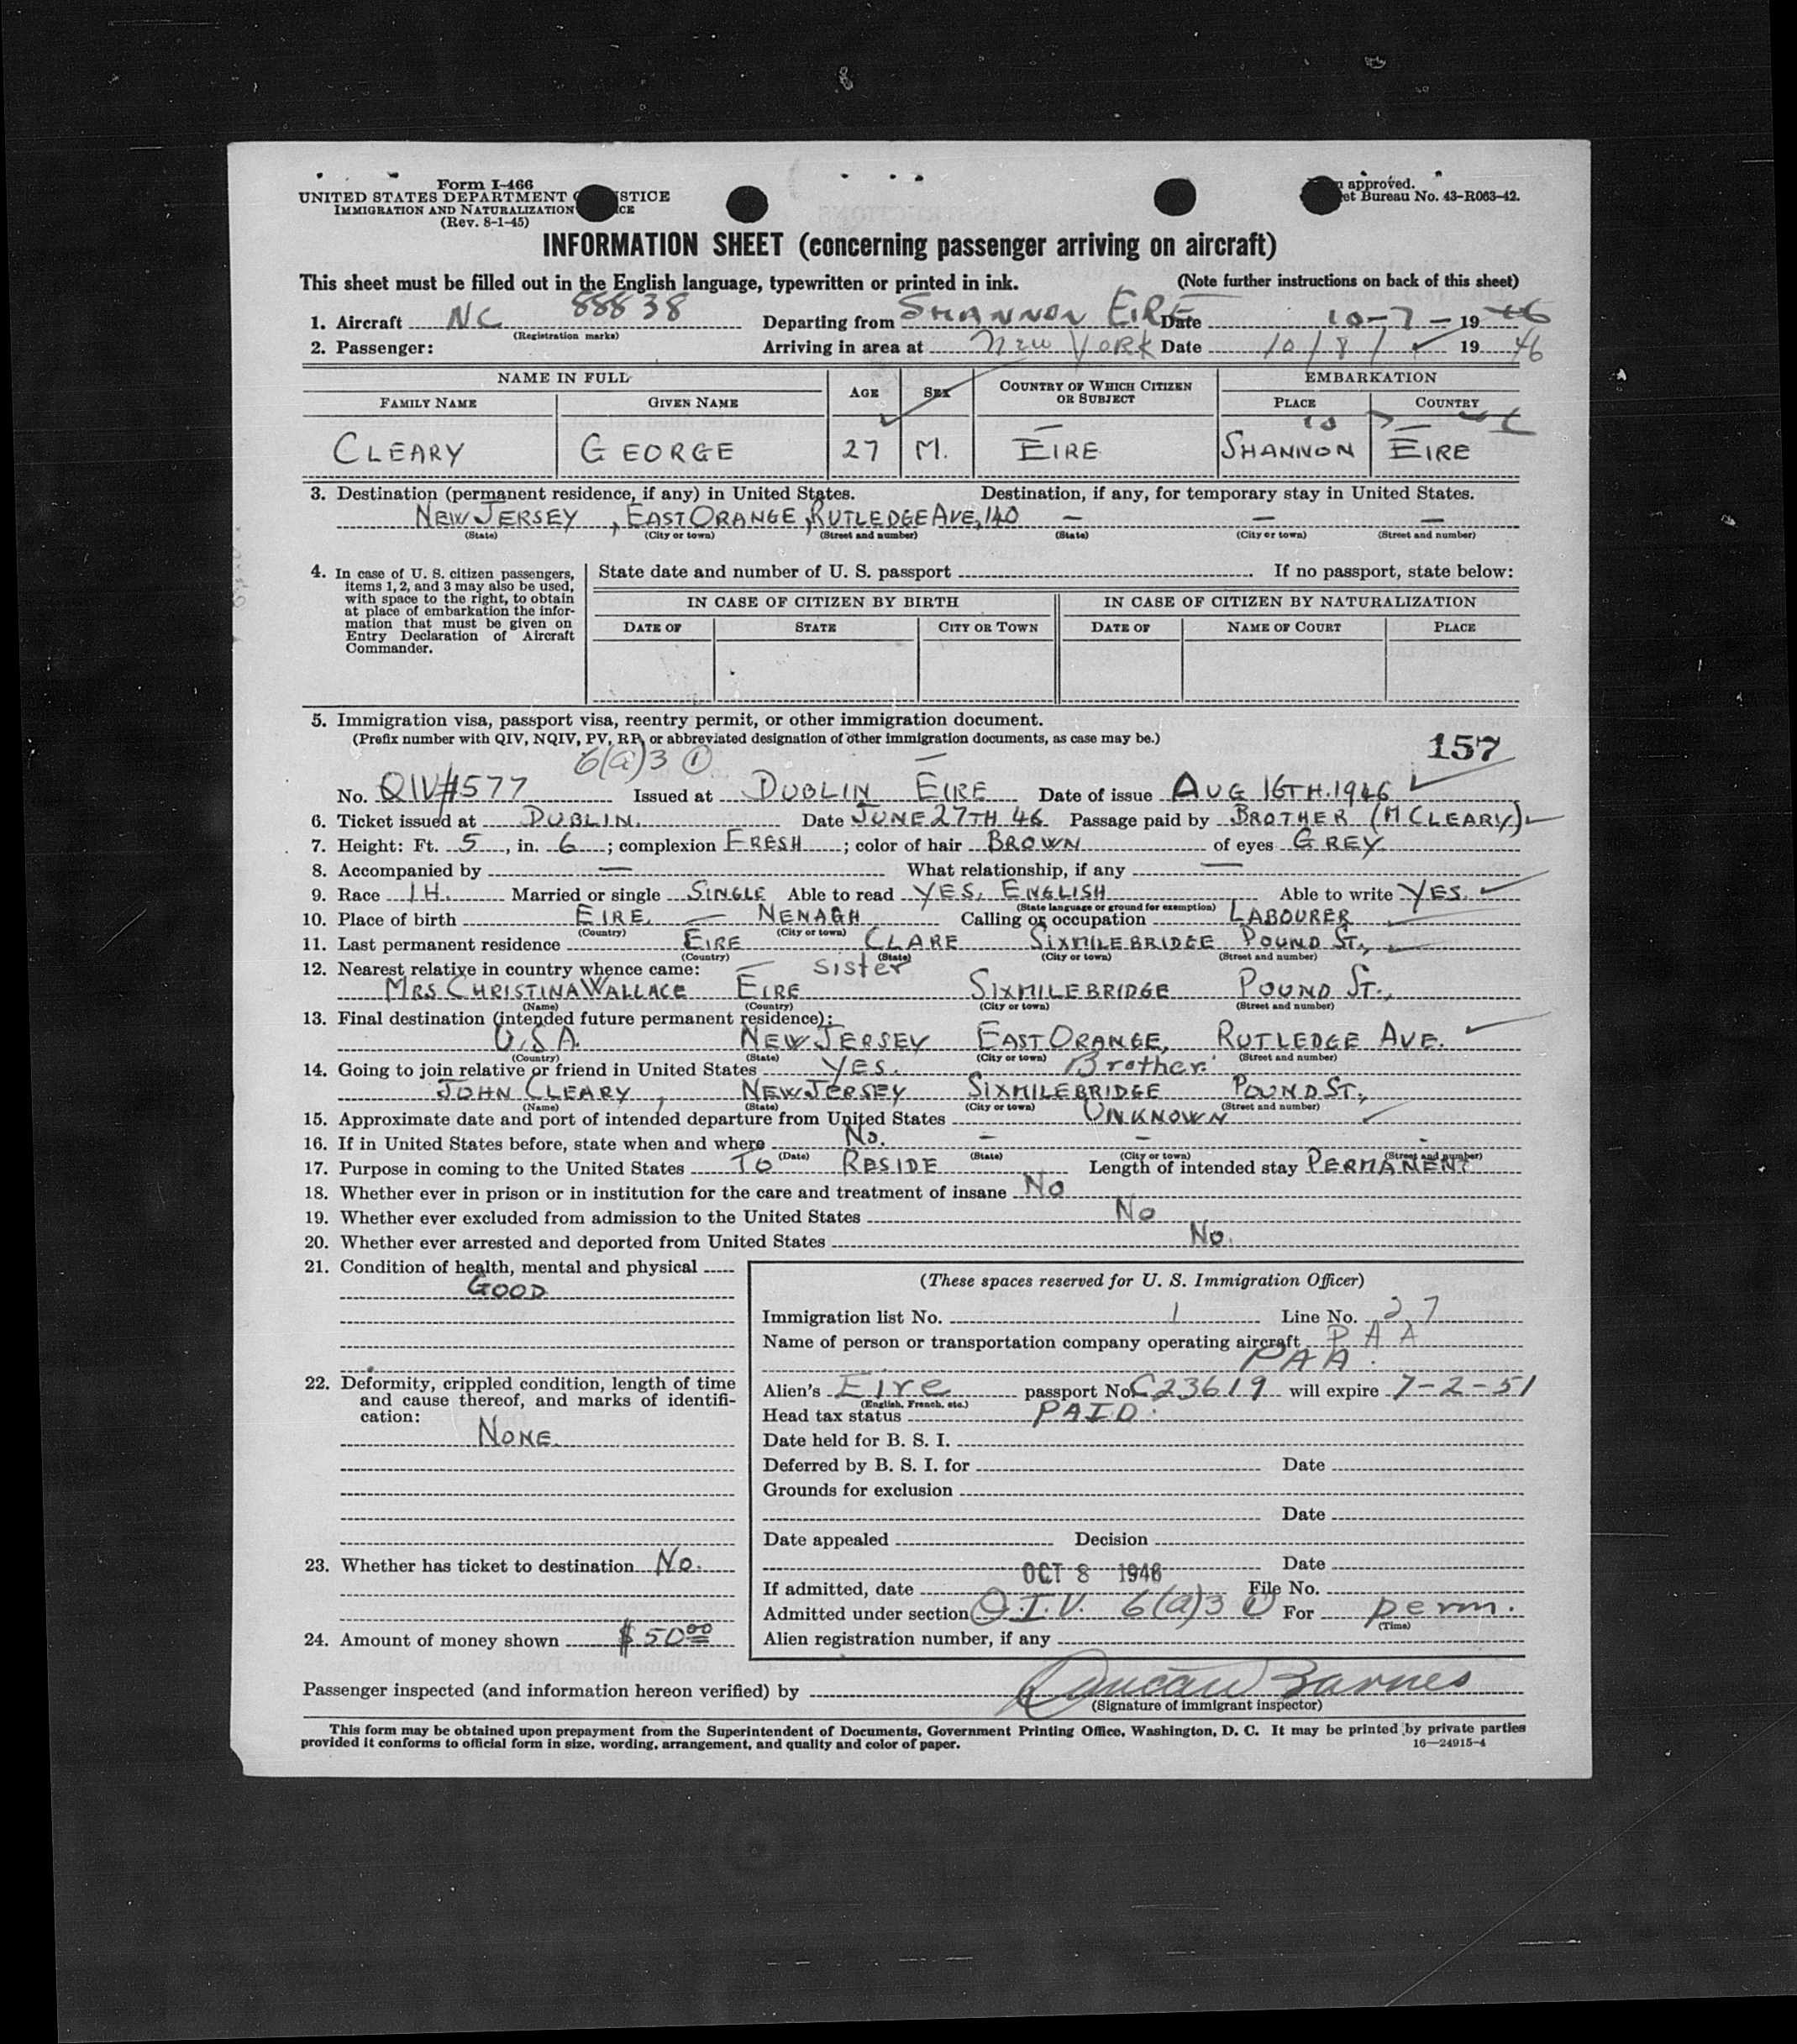 Form I-466
UNITED STATES DEPARTMENT STICE
IMMIGRATION AND NATURALIZATION ICE
(Rev. 8-1-45)
approved.
et Bureau No. 43-R063-42.
INFORMATION SHEET (concerning passenger arriving on aircraft)
This sheet must be filled out in the English language, typewritten or printed in ink. (Note further instructions on back of this sheet)
1. Aircraft NC 88838 Departing from SHANNON EIRE Date 10-7- 1946
(Registration marks)
2. Passenger: Arriving in area at New York Date 10/8/ 1946
NAME IN FULL AGE SEX COUNTRY OF WHICH CITIZEN OR SUBJECT EMBARKATION
FAMILY NAME GIVEN NAME PLACE COUNTRY
CLEARY GEORGE 27 M. EIRE SHANNON EIRE
3. Destination (permanent residence, if any) in United States. Destination, if any, for temporary stay in United States.
NEW JERSEY, EAST ORANGE, RUTLEDGE AVE, 140 — — —
(State) (City or town) (Street and number) (State) (City or town) (Street and number)
4. In case of U. S. citizen passengers, items 1, 2, and 3 may also be used, with space to the right, to obtain at place of embarkation the information that must be given on Entry Declaration of Aircraft Commander.
State date and number of U. S. passport If no passport, state below:
IN CASE OF CITIZEN BY BIRTH IN CASE OF CITIZEN BY NATURALIZATION
DATE OF STATE CITY OR TOWN DATE OF NAME OF COURT PLACE
5. Immigration visa, passport visa, reentry permit, or other immigration document.
(Prefix number with QIV, NQIV, PV, RP, or abbreviated designation of other immigration documents, as case may be.) 157
6(a)3 ①
No. QIV#1577 Issued at DUBLIN EIRE Date of issue AUG 16TH. 1946
6. Ticket issued at DUBLIN. Date JUNE 27TH 46 Passage paid by BROTHER (M CLEARY)
7. Height: Ft. 5, in. 6; complexion FRESH; color of hair BROWN of eyes GREY
8. Accompanied by — What relationship, if any —
9. Race IH. Married or single SINGLE Able to read YES, ENGLISH Able to write YES.
(State language or ground for exemption)
10. Place of birth EIRE — NENAGH Calling or occupation LABOURER
(Country) (City or town)
11. Last permanent residence EIRE CLARE SIXMILEBRIDGE POUND ST.,
(Country) (State) (City or town) (Street and number)
12. Nearest relative in country whence came: sister
MRS CHRISTINA WALLACE EIRE SIXMILEBRIDGE POUND ST.,
(Name) (Country) (City or town) (Street and number)
13. Final destination (intended future permanent residence):
U.S.A. NEW JERSEY EAST ORANGE, RUTLEDGE AVE.
(Country) (State) (City or town) (Street and number)
14. Going to join relative or friend in United States YES. Brother
JOHN CLEARY, NEW JERSEY SIXMILEBRIDGE POUND ST.,
(Name) (State) (City or town) (Street and number)
15. Approximate date and port of intended departure from United States UNKNOWN
16. If in United States before, state when and where No. — — -
(Date) (State) (City or town) (Street and number)
17. Purpose in coming to the United States TO RESIDE Length of intended stay PERMANENT
18. Whether ever in prison or in institution for the care and treatment of insane No
19. Whether ever excluded from admission to the United States No
20. Whether ever arrested and deported from United States No.
21. Condition of health, mental and physical
GOOD
22. Deformity, crippled condition, length of time and cause thereof, and marks of identification:
NONE.
23. Whether has ticket to destination No.
24. Amount of money shown $50.00
(These spaces reserved for U. S. Immigration Officer)
Immigration list No. 1 Line No. 27
Name of person or transportation company operating aircraft PAA
PAA.
Alien's Eire passport No. C23619 will expire 7-2-51
(English, French, etc.)
Head tax status PAID.
Date held for B. S. I.
Deferred by B. S. I. for Date
Grounds for exclusion
Date
Date appealed Decision
Date
If admitted, date OCT 8 1946 File No.
Admitted under section Q.I.V. 6(a)3 ① For perm.
(Time)
Alien registration number, if any
Passenger inspected (and information hereon verified) by Duncan Barnes
(Signature of immigrant inspector)
This form may be obtained upon prepayment from the Superintendent of Documents, Government Printing Office, Washington, D. C. It may be printed by private parties
provided it conforms to official form in size, wording, arrangement, and quality and color of paper. 16—24915-4